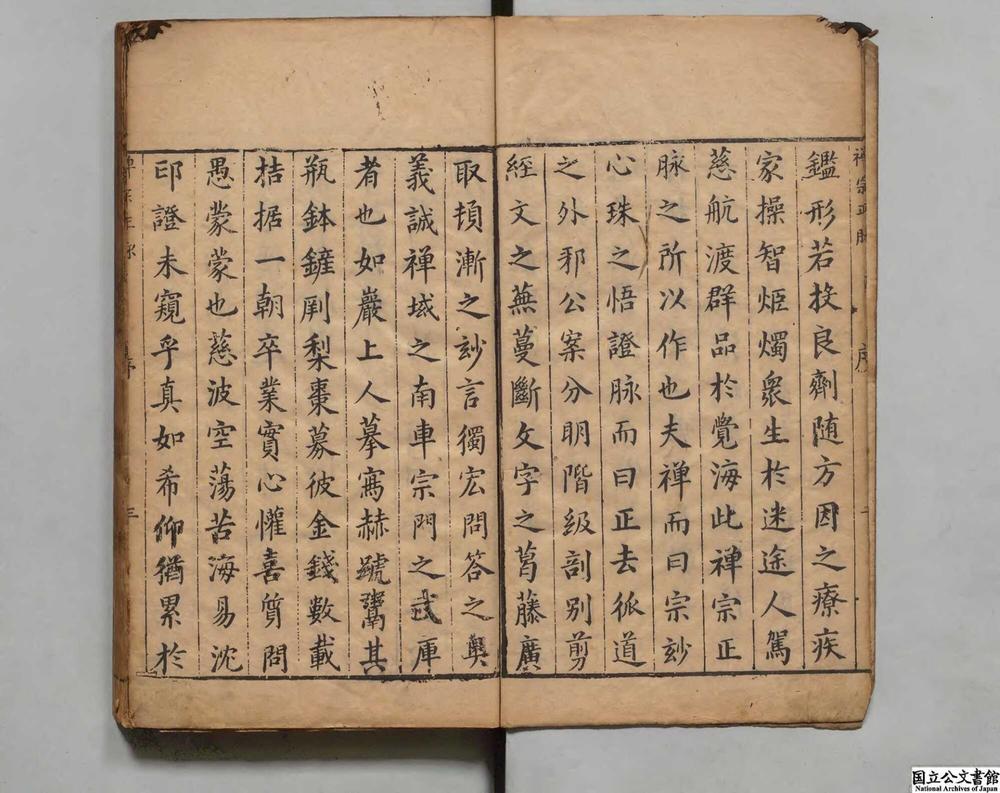 禅宗正脉 序
鑑形若投良劑随方因之療疾
家操智炬燭衆生於迷途人駕
慈航渡群品於覺海此禅宗正
脉之所以作也夫禅而曰宗玅
心珠之悟證脉而曰正去泒道
之外邪公案分明階級剖别剪
經文之蕪蔓斷文字之葛藤廣
取頓漸之玅言獨宏問答之奥
義誠禅域之南車宗門之武庫
者也如巖上人摹寫赫蹏鬻其
瓶鉢鏟刷梨棗募彼金錢數載
拮据一朝卒業實心懽喜質問
愚蒙蒙也慈波空蕩苦海易沈
印證未窺乎真如希仰猶累於
序 三
国立公文書館
National Archives of Japan